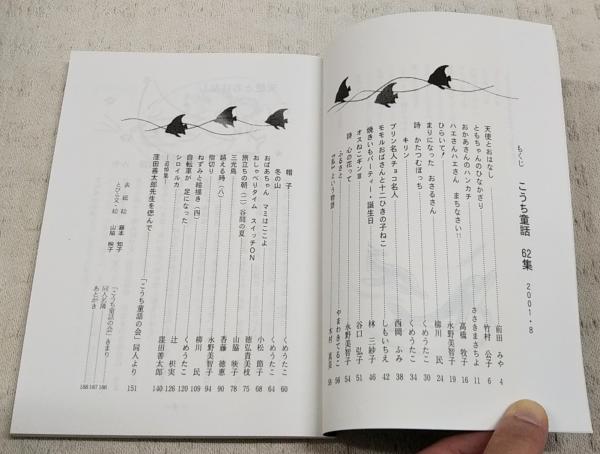 もくじ
こうち童話 62集 2001・8
天使とおはなし
ともちゃんのひなかざり
おかあさんのハンカチ
ハエさんハエさん まちなさい!!
ひらいて!
まりになった おさるさん
詩 かたつむぼっち
キリン
プリン名人チョコ名人
モモルおばさんと十二ひきの子ねこ
焼きいもパーティー・誕生日
オスねこギンⅢ
詩 心の花って
ふるさと
という物語
前田 みや 4
竹村 公子 6
ささきまさちよ 11
高橋 牧子 16
永野美智子 19
柳川 民 24
くめうたこ 30
くめうたこ 34
西岡 ふみ 38
しもいちえ 42
林 三紗子 46
谷口 弘子 51
永野美智子 54
やまわきてるこ 56
木村 真実 58
帽子
冬の山
おばあちゃん マミはここよ
おしゃべりタイム スイッチON
旅立ちの朝(二)谷間の夏
三光鳥
越える時(八)
指切り
ねずみと絵描き(四)
自転車が足になった
シロイルカ
追悼集
窪田善太郎先生を偲んで
くめうたこ 60
くめうたこ 64
小松 節子 68
徳弘貴美枝 75
山脇 映子 78
香藤 徳恵 90
永野美智子 94
柳川 民 109
くめうたこ 120
辻 积実 126
窪田善太郎 140
「こうち童話の会」同人より 151
「こうち童話の会」きまり 186
同人名簿 187
あとがき 188
表紙絵 藤本 知子
とびら文・絵 山脇 映子